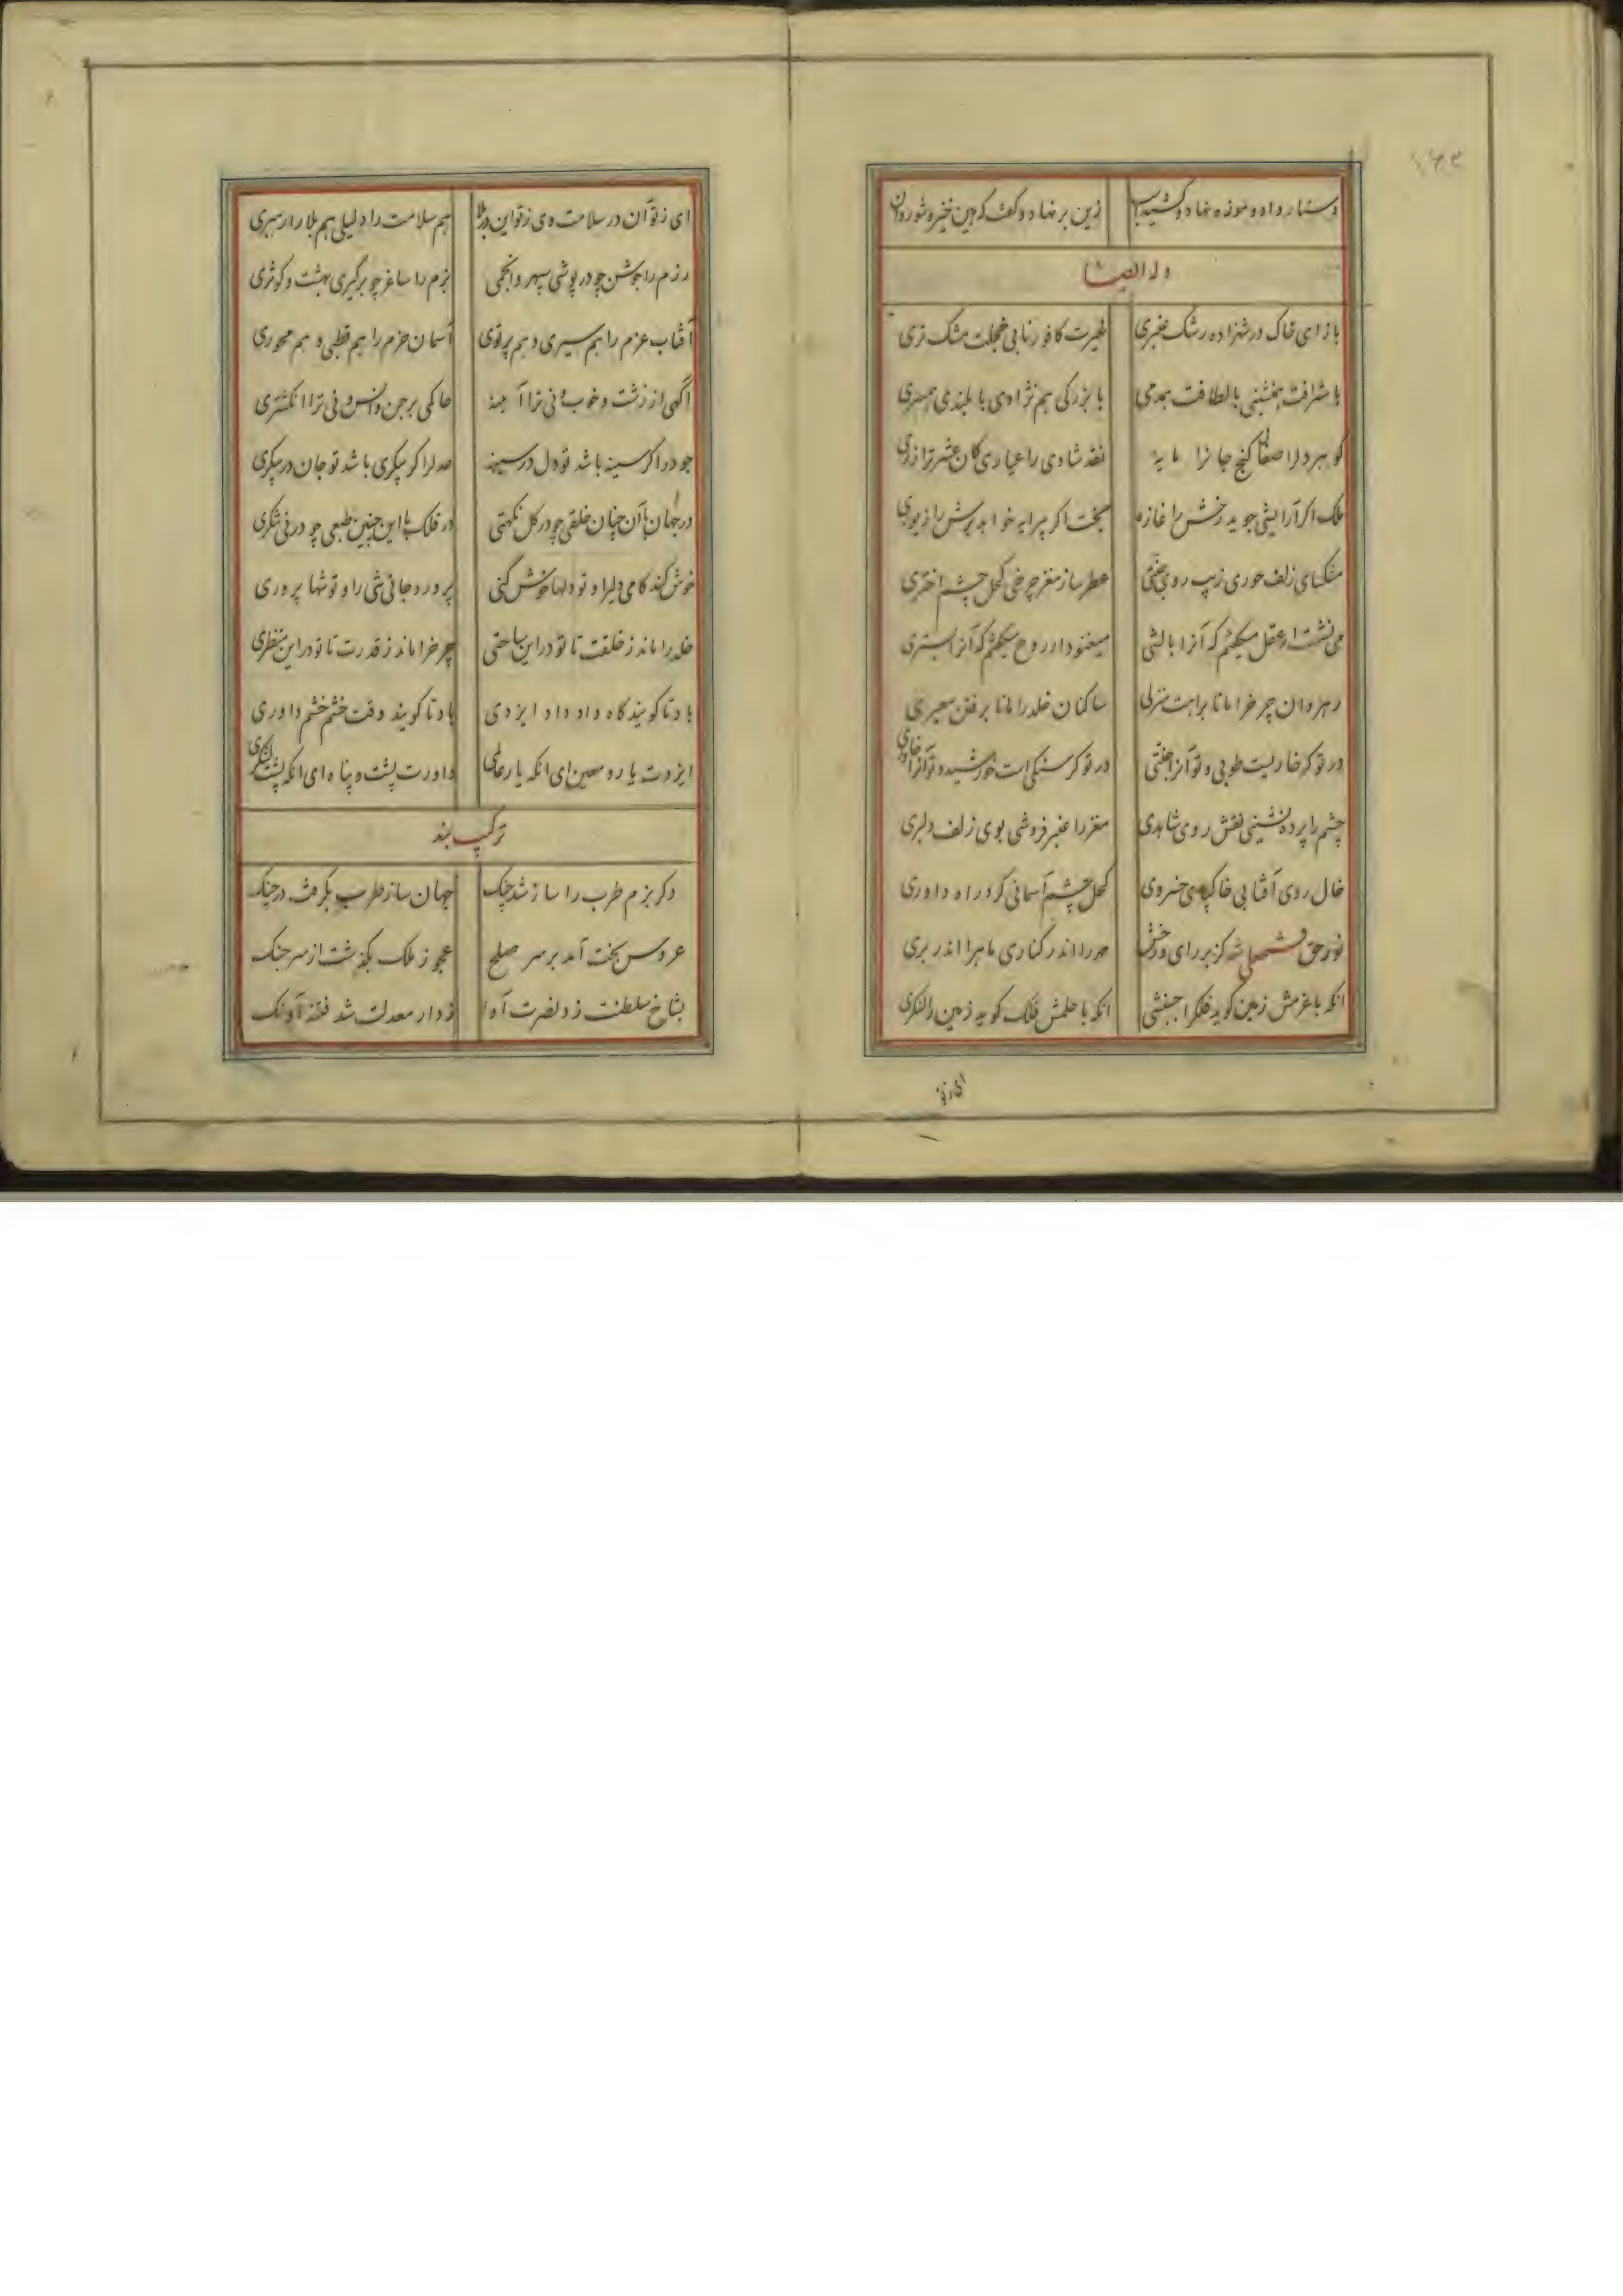 ۱۶۲
دستار داد و موزه نهاد و کشید زین بر نهاد و گفت که هین خیز و شو روان
وله ایضا
باز ای خاک در شهزاده رشک عنبری غیرت کافور نابی خجلت مشک تری
با شرافت همنشینی با لطافت همدمی با بزرکی هم نژادی با بلندی همسری
کوهر دلرا صفائی کنج جانرا مایه نقد شادی را عیاری کان عشرترا زری
ملک اکر آرایشی جوید رخش را غازه بخت اکر پیرایه خواهد برش را زیوری
مشکسای زلف حوری زیب روی جنتی عطرساز مغز چرخی کحل چشم اختری
می نشست ار عقل میکفتم که آنرا بالشی میغنود ار روح میکفتم که آنرا بستری
رهروان چرخ را مانا براهت منزلی ساکنان خلد را مانا برفتن معبری
در تو کر خاریست طوبی و تو آنرا جنتی در تو کر سنکی است خورشید و تو آنرا خاوری
چشم را پرده نشینی نقش روی شاهدی مغز را عنبر فروشی بوی زلف دلبری
خال روی آفتابی خاکپای خسروی کحل چشم آسمانی کرد راه داوری
نور حق کز برای و رخش صدر را اندر کناری ماه را اندر بری
انکه با عزمش زمین کوید فلکرا جنبشی انکه با حلمش فلک کوید زمین را لنکری
ای زتو
ای ز تو آن در سلامت وی ز تو این در بلا هم سلامت را دلیلی هم بلا را رهبری
رزم را جوشن چو در پوشی سپهر و انجمی بزم را ساغر چو برگیری بهشت و کوثری
آفتاب عزم را هم سیری و هم پرتوی آسمان حزم را هم قطبی و هم محوری
آگهی از زشت و خوب و نی ترا آینه حاکمی بر جن و انس و نی ترا انکشتری
جود را کر سینه باشد تو دل در سینه عدلرا کر پیکری باشد تو جان در پیکری
در جهان با آن چنان خلقی چو در کل نکهتی در فلک با این چنین طبعی چو در نی شکری
خوش کند کامی دلیرا و تو دلها خوش کنی پرورد جانی تنی را و تو تنها پروری
خلد را ماند ز خلقت تا تو در این ساحتی چرخ را ماند ز قدرت تا تو در این منظری
باد تا کویند کاه داد داد ایزدی باد تا کویند وقت خشم خشم داوری
ایزدت یار و معین ای انکه یار عالمی داورت پشت و پناه ای انکه پشت لشکری
ترکیب بند
دکر بزم طرب را ساز شد چنک جهان ساز طرب بکرفت در چنک
عروس بخت آمد بر سر صلح عجوز ملک بکذشت از سر جنک
بشاخ سلطنت زد نصرت آوا ز دار معدلت شد فتنه آونک